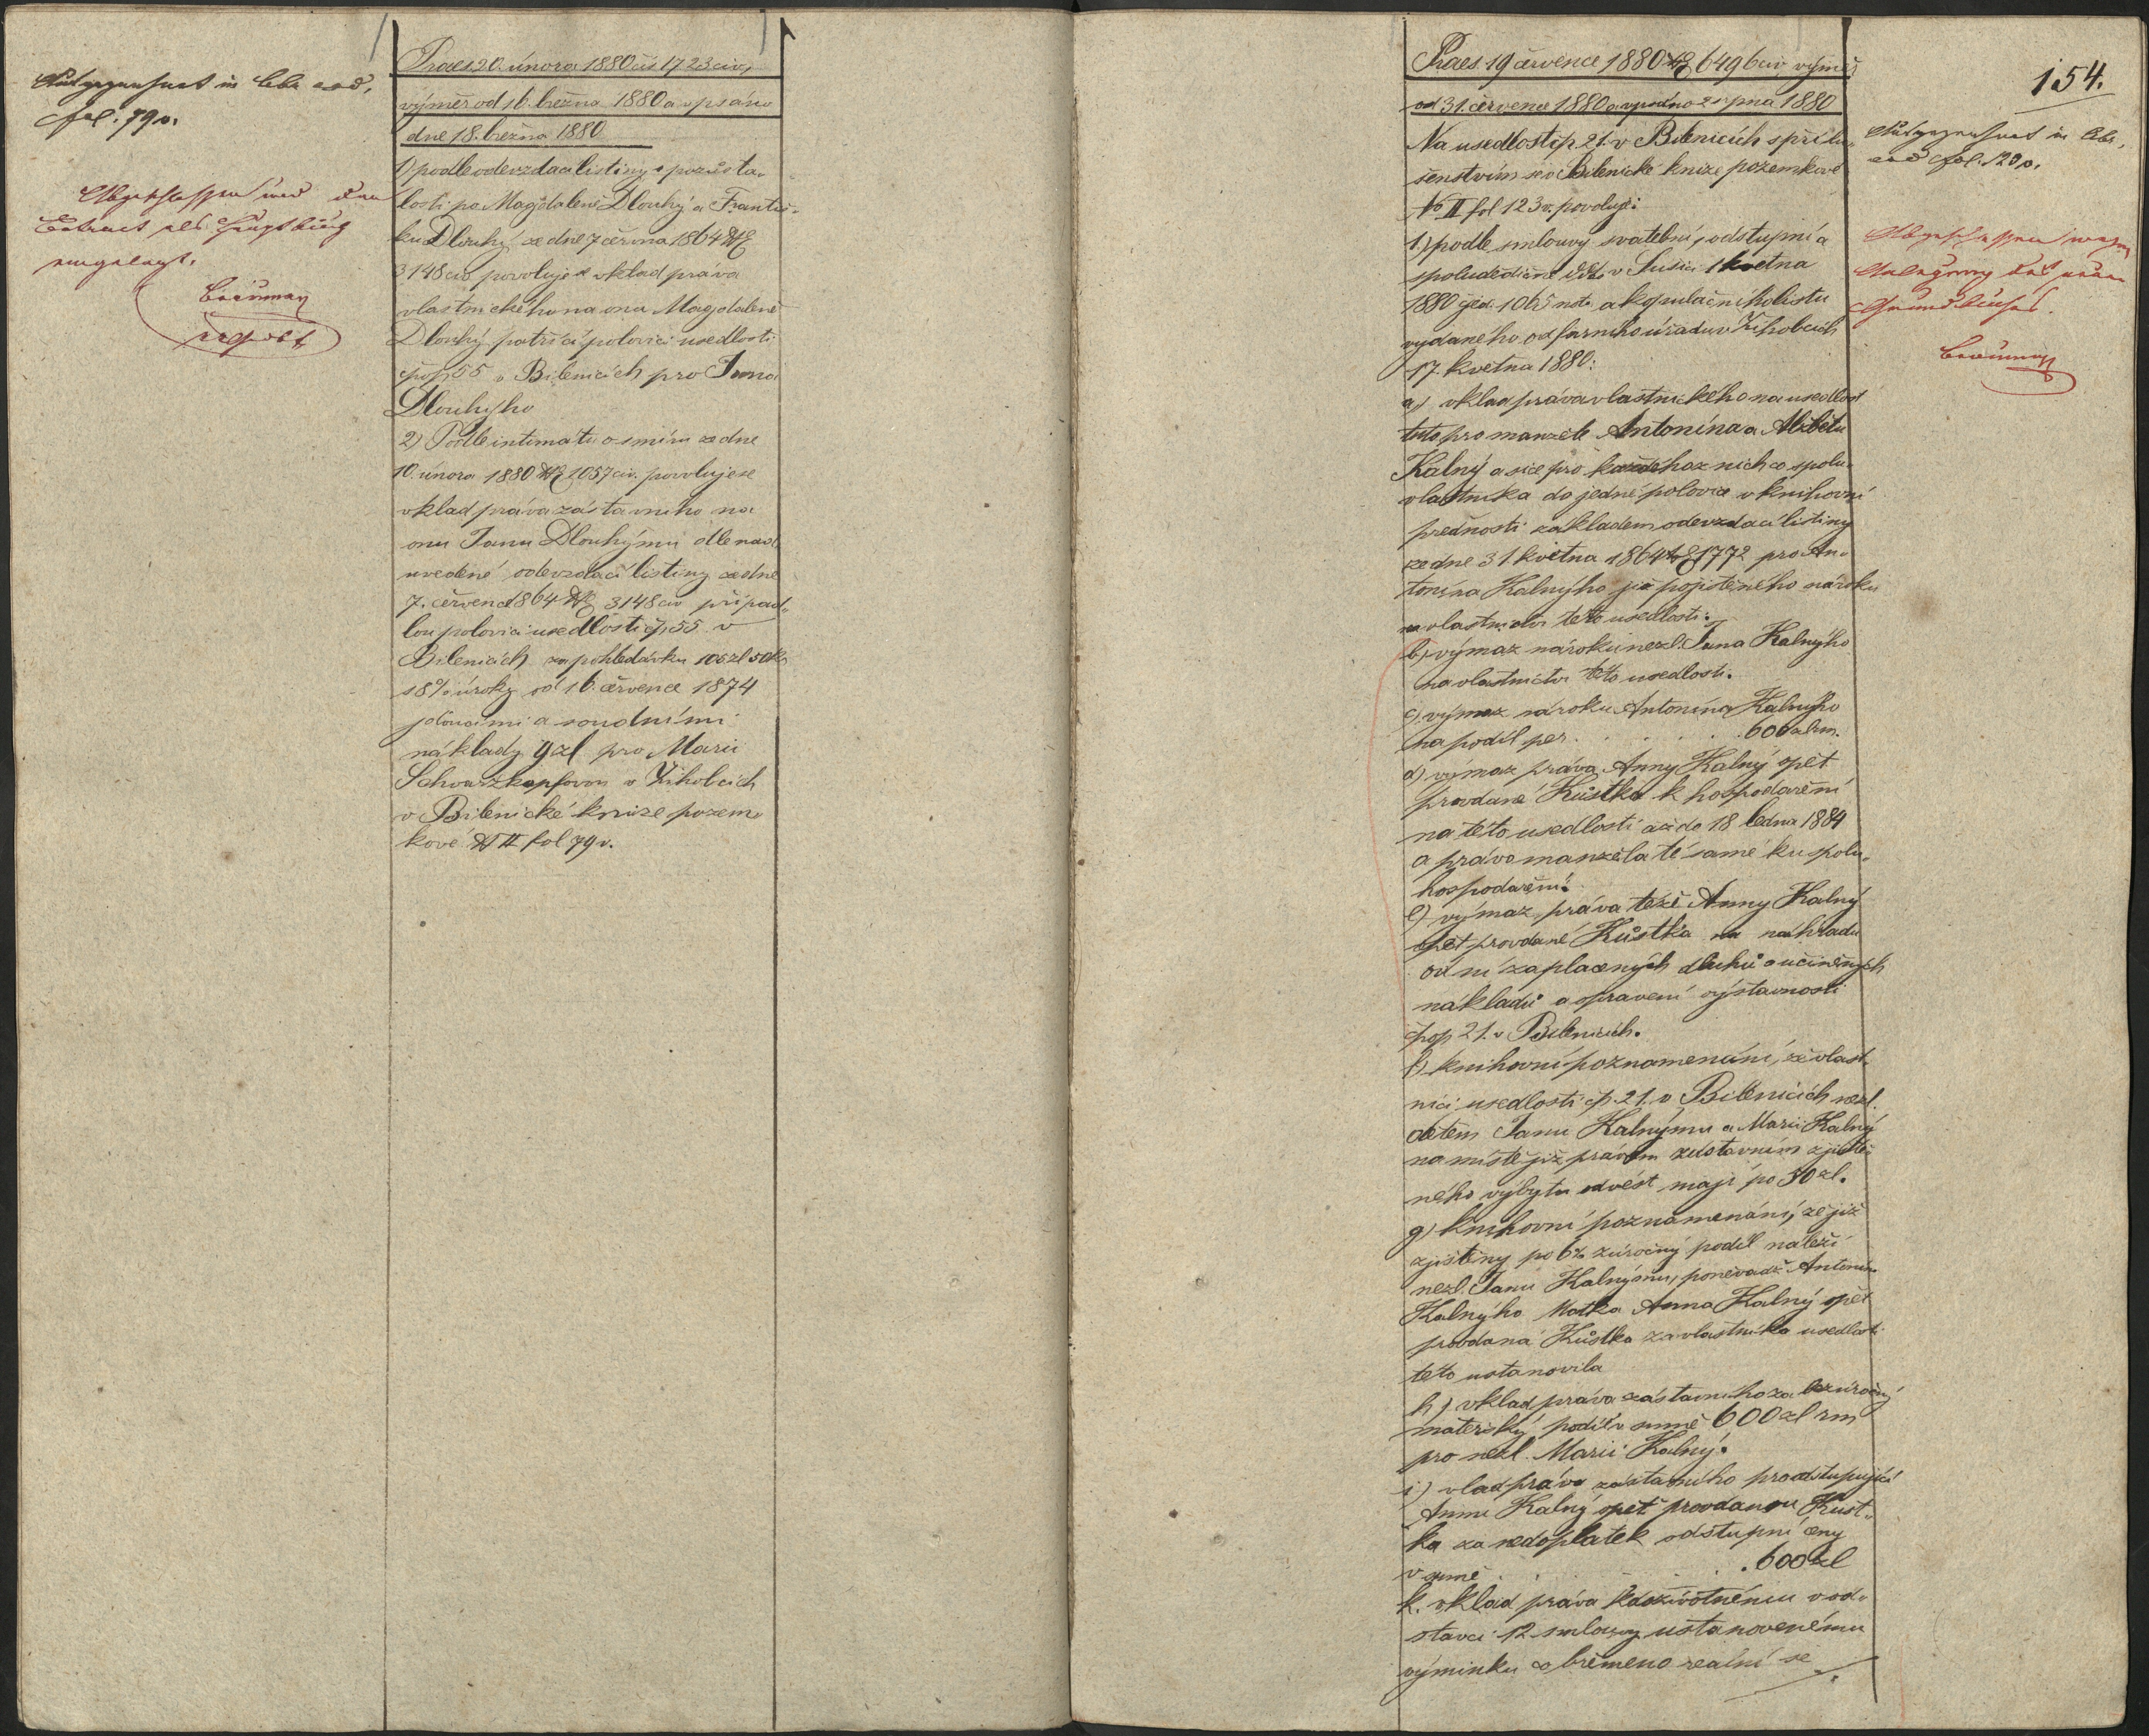 fol. 79v.
Praes 20. února 1880 čís 1723 civ,
výměr od 16. března 1880 a vpsáno
dne 18. března 1880
1) podle odevzdací listiny o pozůsta-
losti po Magdaleně Dlouhý a Františ-
ku Dlouhý ze dne 7 června 1864 №
3148 civ povoluje se vklad práva
vlastnického na onu Magdaleně
Dlouhý patřící polovici usedlosti
čpop 55 v Bilenicích pro Jana
Dlouhyho
2) Podle intimátu o smíru ze dne
10. února 1880 № 1057 civ. povoluje se
vklad práva zástavního na
onu Janu Dlouhýmu dle nad
uvedené odevzdací listiny ze dne
7. července 1864 № 3148 civ připad-
lou polovici usedlosti čp 55 v
Bilenicích za pohledávku 105 zl 50 kr
s 8% úroky od 16. července 1874
jdoucími a soudními
náklady 9 zl pro Marii
Schwarzkopfovou v Žihobcích
v Bilenické knize pozem-
kové № II fol 79v.
154.
Praes. 19 července 1880 № 6496 civ výměr
od 31. července 1880 a vpsáno 2 srpna 1880
Na usedlosti čp 21. v Bilenicích s přílu-
šenstvím se v Bilenické knize pozemkové
No II fol 123v. povoluje:
1.) podle smlouvy svatební, odstupní a
spoludědičné ddto v Sušici 1 května
1880 jed. 1065 not. a kopulačního listu
vydaného od farního úřadu v Žihobcích
17. května 1880:
a) vklad práva vlastnického na usedlost
tuto pro manžele Antonína a Alžbětu
Kalný a sice pro každého z nich co spolu-
vlastníka do jedné polovice v knihovní
přednosti základem odevzdací listiny
ze dne 31 května 1864 № 1772 pro An-
tonína Kalnýho již pojištěného nároku
na vlastnictví této usedlosti.
b) výmaz nároku nezl. Jana Kalnýho
na vlastnictví této usedlosti.
c) výmaz nároku Antonína Kalnýho
na podíl per . . . . . 600 zl rm.
d) výmaz práva Anny Kalný opět
provdané Kůstka k hospodaření
na této usedlosti až do 18 ledna 1884
a práva manžela té samé ku spolu-
hospodaření.
e) výmaz práva téže Anny Kalný
opět provdané Kůstka na náhradu
od ní zaplacených dluhů a učiněných
nákladů a spravení výstavnosti
čpop 21. v Bilenicích.
f) knihovní poznamenání, že vlast-
níci usedlosti čp. 21. v Bilenicích nezl.
dětem Janu Kalnýmu a Marii Kalný
na místě již právem zástavním zjiště-
ného výbytu odvést mají po 50 zl.
g) knihovní poznamenání, že již
zjištěny po 6% zúročný podíl náleží
nezl. Janu Kalnýmu, poněvadž Antonína
Kalnýho Matka Anna Kalný opět
provdaná Kůstka za vlastníka usedlosti
této ustanovila
h) vklad práva zástavního za bezúročný
mateřský podíl v sumě 600 zl rm
pro nezl. Marii Kalný.
i) vlad práva zástavního pro odstupující
Annu Kalný opět provdanou Kůst-
ka za nedoplatek odstupní ceny
v sumě . . . . 600 zl
k. vklad práva k doživotnému v od-
stavci 12 smlouvy ustanovenému
výminku co břemeno reální se